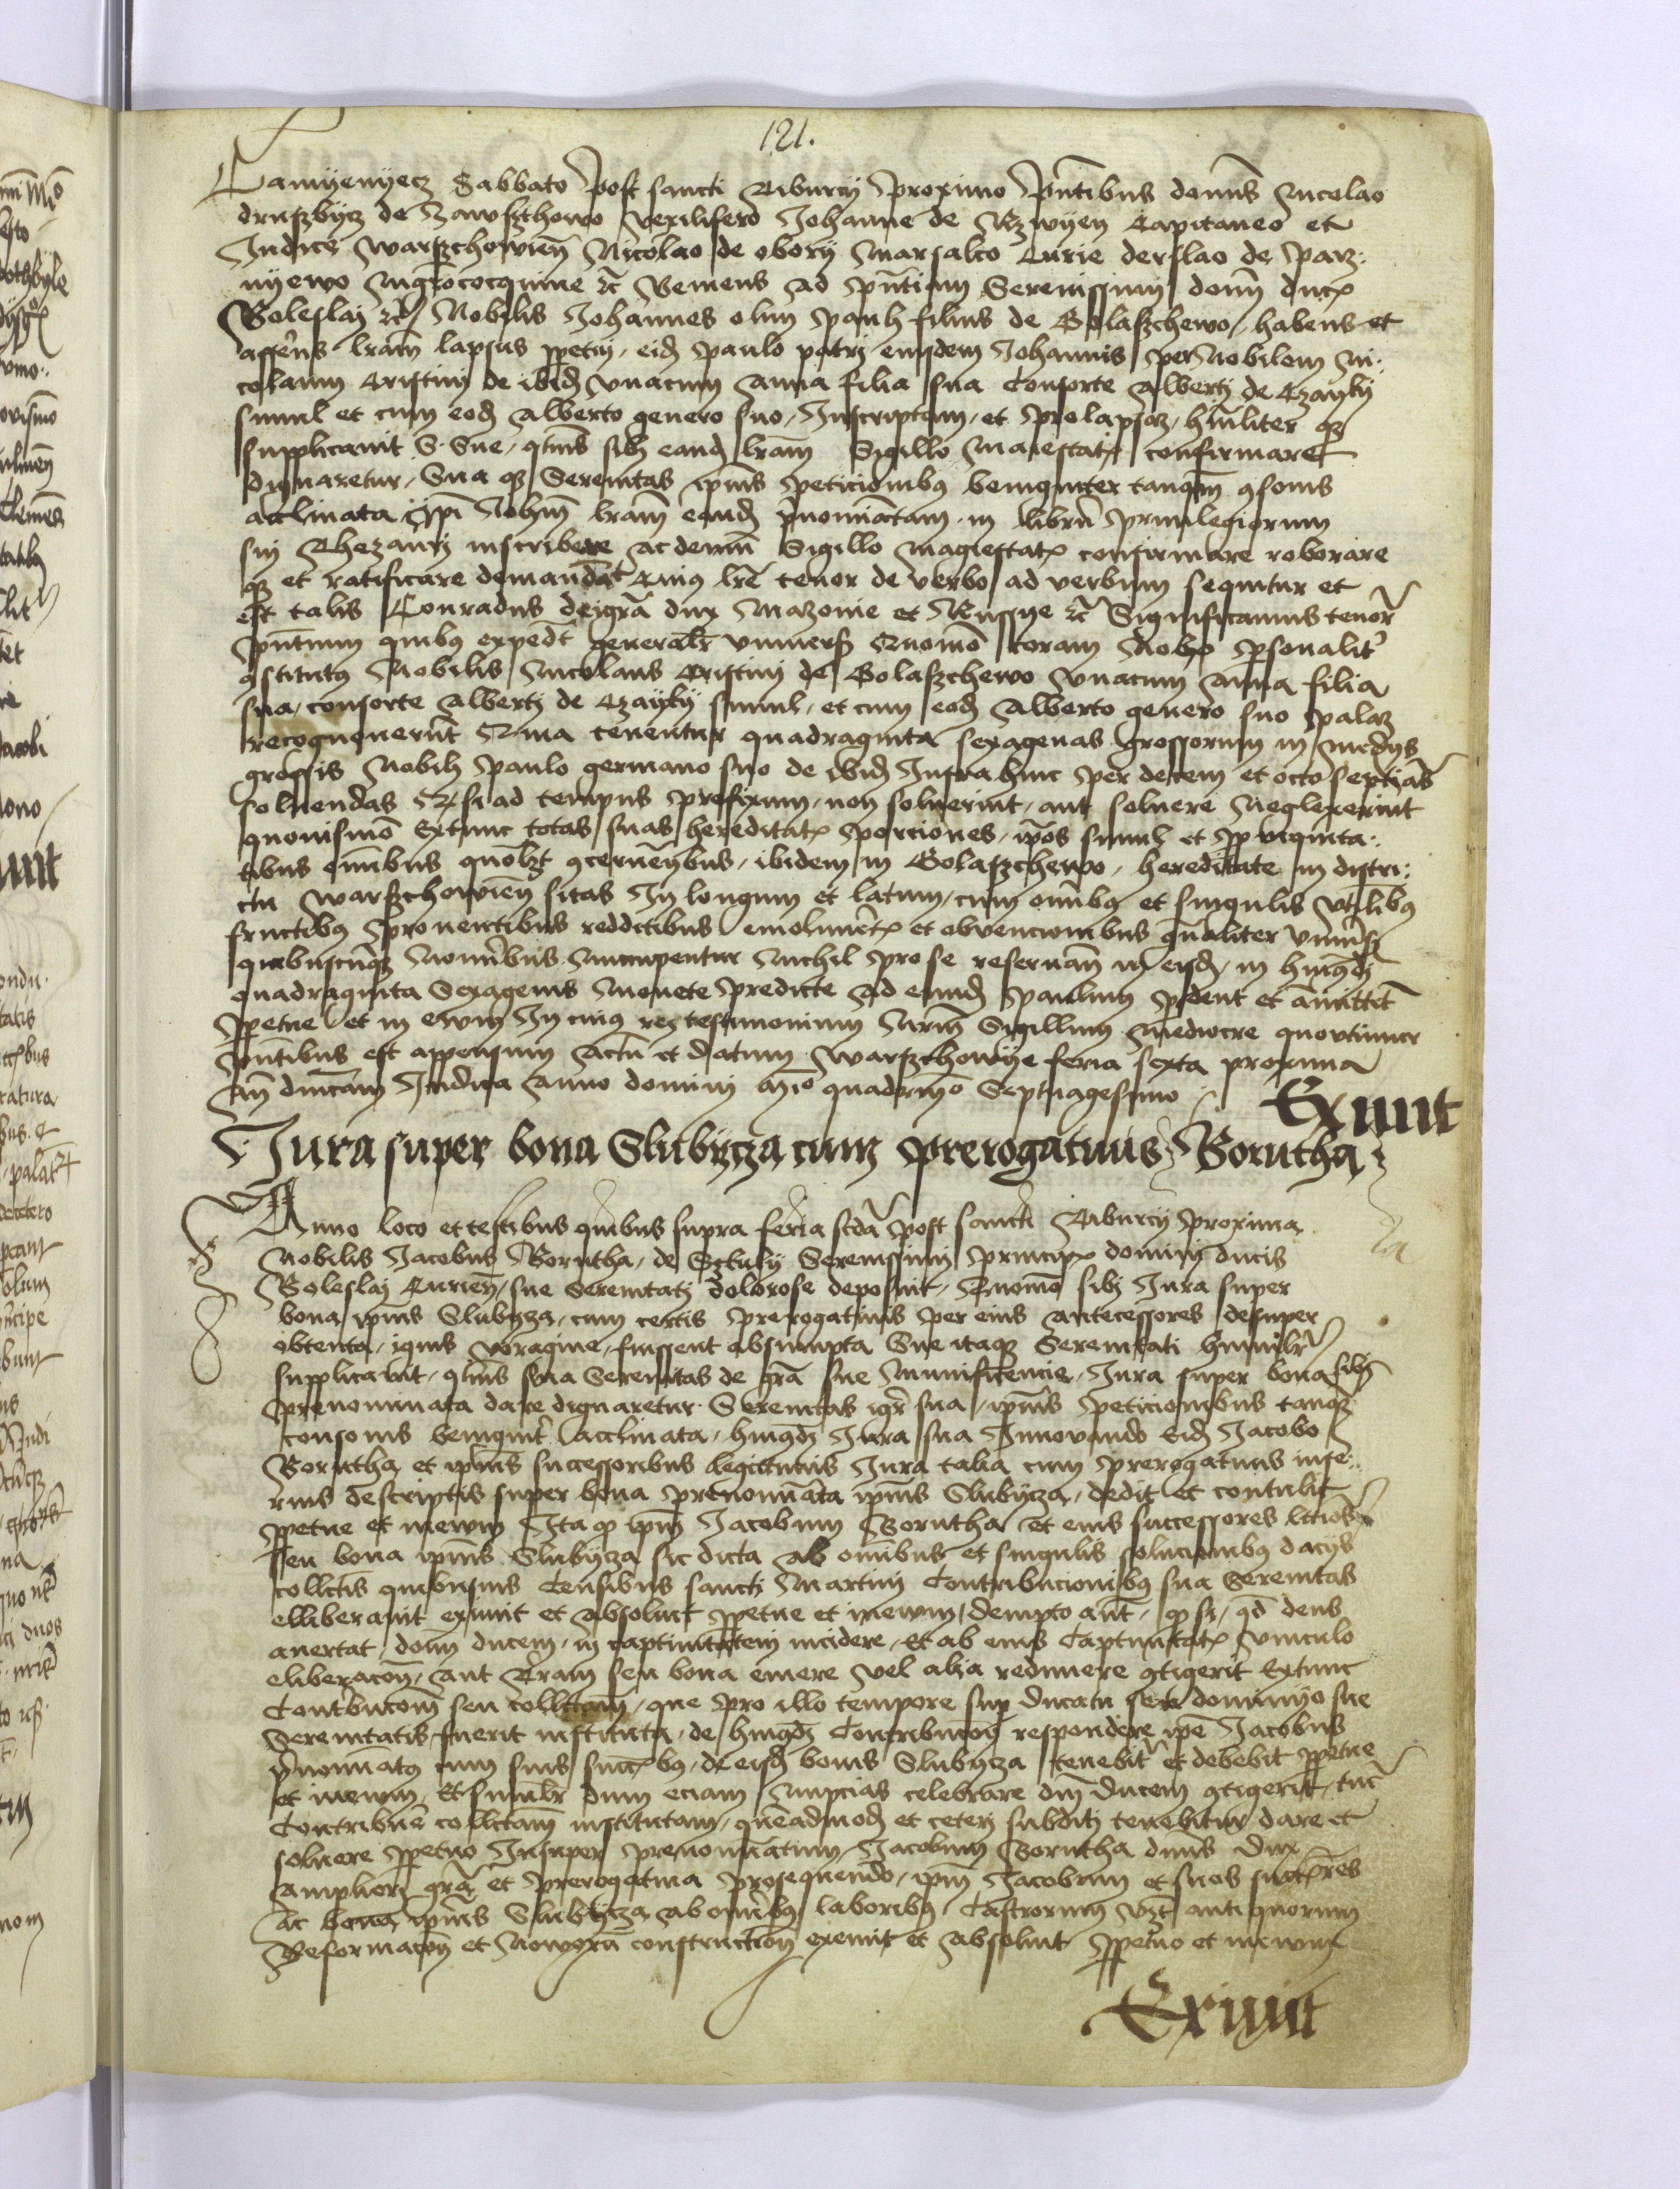 121.
Camyenyecz Sabbato post sancti Tiburcij proximo Pntibus domis Nicolao
druszbycz de Zawszthowo vexillifero Johanne de Rzwyen Capitaneo et
Judice Warschowien Nicolao de obory Marsalco Curie derslao de parz:
nyewo mgro cocquine etc Veniens ad pntiam Serenissimi domi ducis
Boleslai etc Nobilis Johannes olim Pauli filius de Golaszchewo habens et
asserens lram lapsus ppetui eid Paulo patri eiusdem Johannis per Nobilem Ni:
colaum Cristini de ibid vnacum Anna filia sua Consorte Alberti de Czayki
simul et cum eod Alberto genero suo Inscriptam et prolapsaz hmliter qz
supplicauit S. Sue qtms sibi eand lram Sigillo Maiestatis confirmare
dignaretur Sua qz Serenitas ipius peticionibus benigniter tanqm gsonis
acclinata ipi Johni lram eand pnominatam in librum priuilegiorum
sui Thezauri inscribere ac demum Sigillo magiestatis confirmare roborare
qz et ratificare demandat Cuius lre tenor de verbo ad verbum sequitur et
est talis Conradus dei gra dux Mazouie et Russye etc Significamus tenore
pntium quibus expedit generalr vniuersis Quomo coram Nobis psonaliter
gstitutus Nobilis Nicolaus Cristini de Golaszchewo vnacum Anna filia
sua consorte Alberti de Czayky simul et cum eod Alberto genero suo palaz
recognouerut Qma tenentur quadraginta sexagenas grossorum in medys
grossis Nobili Paulo germano suo de ibid Infra hinc per decem et octo septias
soluendas Et si ad tempus prefixum non soluerint aut soluere Neglexerint
quouismo Extunc totas suas hereditatis porciones ipos simul et pp vicinita:
tibus omibus quolzt gcernentibus ibidem in Golaszchewo hereditate in distri:
ctu Warschowien sitas In longum et latum cum omibus et singulis vtilibus
fructibus prouentibus redditibus emolumetis et obuencionibus qualiter vniuersis
quibuscuqz Nomibus Nuncupentur Nichil pro se reseruan in eisd in huiqdi
quadraginta Sexagenis Monete predicte Ad eund Paulum pdent et amittet
ppetue et in ewum In cuius rei testimonium Nrum Sigillum mediocre quo vtimur
pntibus est appensum Actu et datum Warschowye feria sexta proxima
An dnicam Judica Anno domini Mio quadrimo Septuagesimo
Exiuit
Jura super bona Slubycza cum prerogatiuis Borutha
Anno loco et testibus quibus supra feria scda post sancti Tiburcij proxima
Nobilis Jacobus Borutha de Sczuky Serenissimi principis domini ducis
Boleslai Curien sue Serenitati dolorose deposuit Quomo sibi Jura super
bona ipius Slubycza cum certis prerogatiuis per eius antecessores desuper
obtenta ignis voragine fuissent absumpta Sue itaqz Serenitati humilr
supplicauit qtms sua Serenitas de gra sue Munificencie Jura super bona sibi
prenominata dare dignaretur Serenitas igr sua ipius peticionibus tanqz
consonis benignit acclinata huiqdi Jura sua Innouando Eid Jacobo
Borutha et ipius successoribus legittimis Jura talia cum prerogatiuis infe:
rius descriptis super bona prenominata ipius Slubycza dedit et contulit
ppetue et inewum Ita qz ipm Jacobum Borutha et eius successores lttios
seu bona ipius Slubycza sic dicta ab omibus et singulis solucionibus dacys
collctis quibusuis Censibus sancti Martini Contribucionibus sua Serenitas
elliberauit exiuit et absoluit ppetue et inewum dempto aut qz si qd deus
auertat domi ducem in captiuitatem incidere Et ab eius Captiuitatis vinculo
eliberacon aut Terram seu bona emere vel alia redimere gtigerit Extunc
Contribucom seu collctam que pro illo tempore sup Ducatu seu dominyo sue
Serenitatis fuerit instituta de huigdi Contribucon respondere ipe Jacobus
pnominatus cum suis succesbus de eisd bonis Slubycza tenebit et debebit ppetue
et inewum Et similr dum eciam Nupcias celebrare dm ducem gtigerit tuc
Contribue collctam institutam quadmod et ceteri subditi tenebitur dare et
soluere ppetuo Insuper prenominatum Jacobum Borutha dmus dux
ampliori gra et prerogatiua prosequendo ipm Jacobum et suos succres
ac bona ipius Slubycza ab omibus laboribus Castrorum vzt antiquorum
Reformacon et Nowyru construction exemit et absoluit ppetuo et inewum
Exiuit